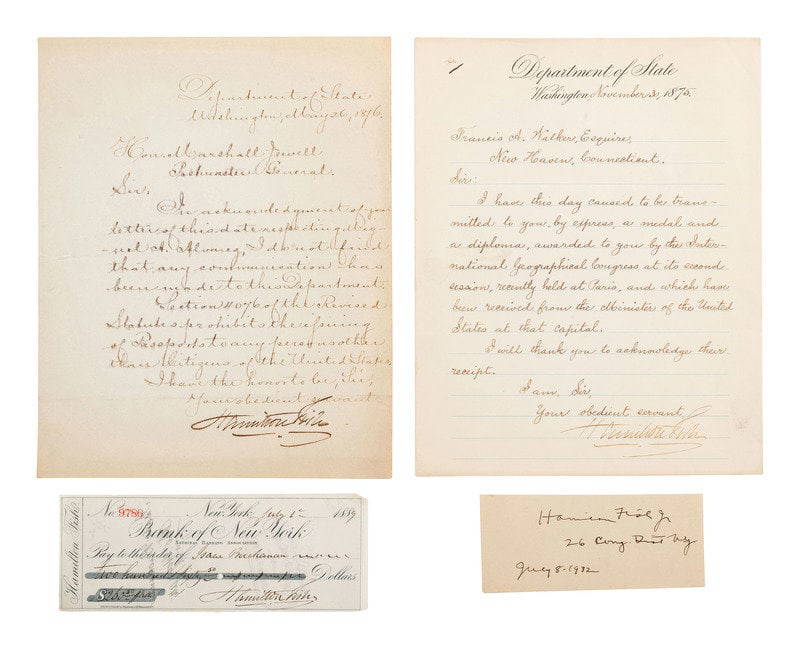 Department of State
Washington, May 26, 1876.
Hon. Marshall Jewell
Postmaster General.
Sir.
In acknowledgment of your
letter of this date respecting Mig-
-uel A. I do not find
that any communication has
been made to this Department.
Section 4076 of the Revised
Statutes prohibits the issuing
of Passports to any persons other
than Citizens of the United States.
I have the honor to be, Sir,
Your obedient servant
Hamilton Fish
Department of State
Washington, November 3, 1875.
Francis A. Walker, Esquire,
New Haven, Connecticut.
Sir:
I have this day caused to be trans-
mitted to you, by express, a medal and
a diploma, awarded to you by the Inter-
national Geographical Congress at its second
session, recently held at Paris, and which have
been received from the Minister of the United
States at that capital.
I will thank you to acknowledge their
receipt.
I am, Sir,
Your obedient servant,
Hamilton Fish
Hamilton Fish
No. 9786 New York July 1st 1889
Bank of New York
NATIONAL BANKING ASSOCIATION
Pay to the order of Isaac Buchanan
Two hundred sixty 50 Dollars
Hamilton Fish
Hamilton Fish Jr
26 Cong Dist NY
July 8-1932